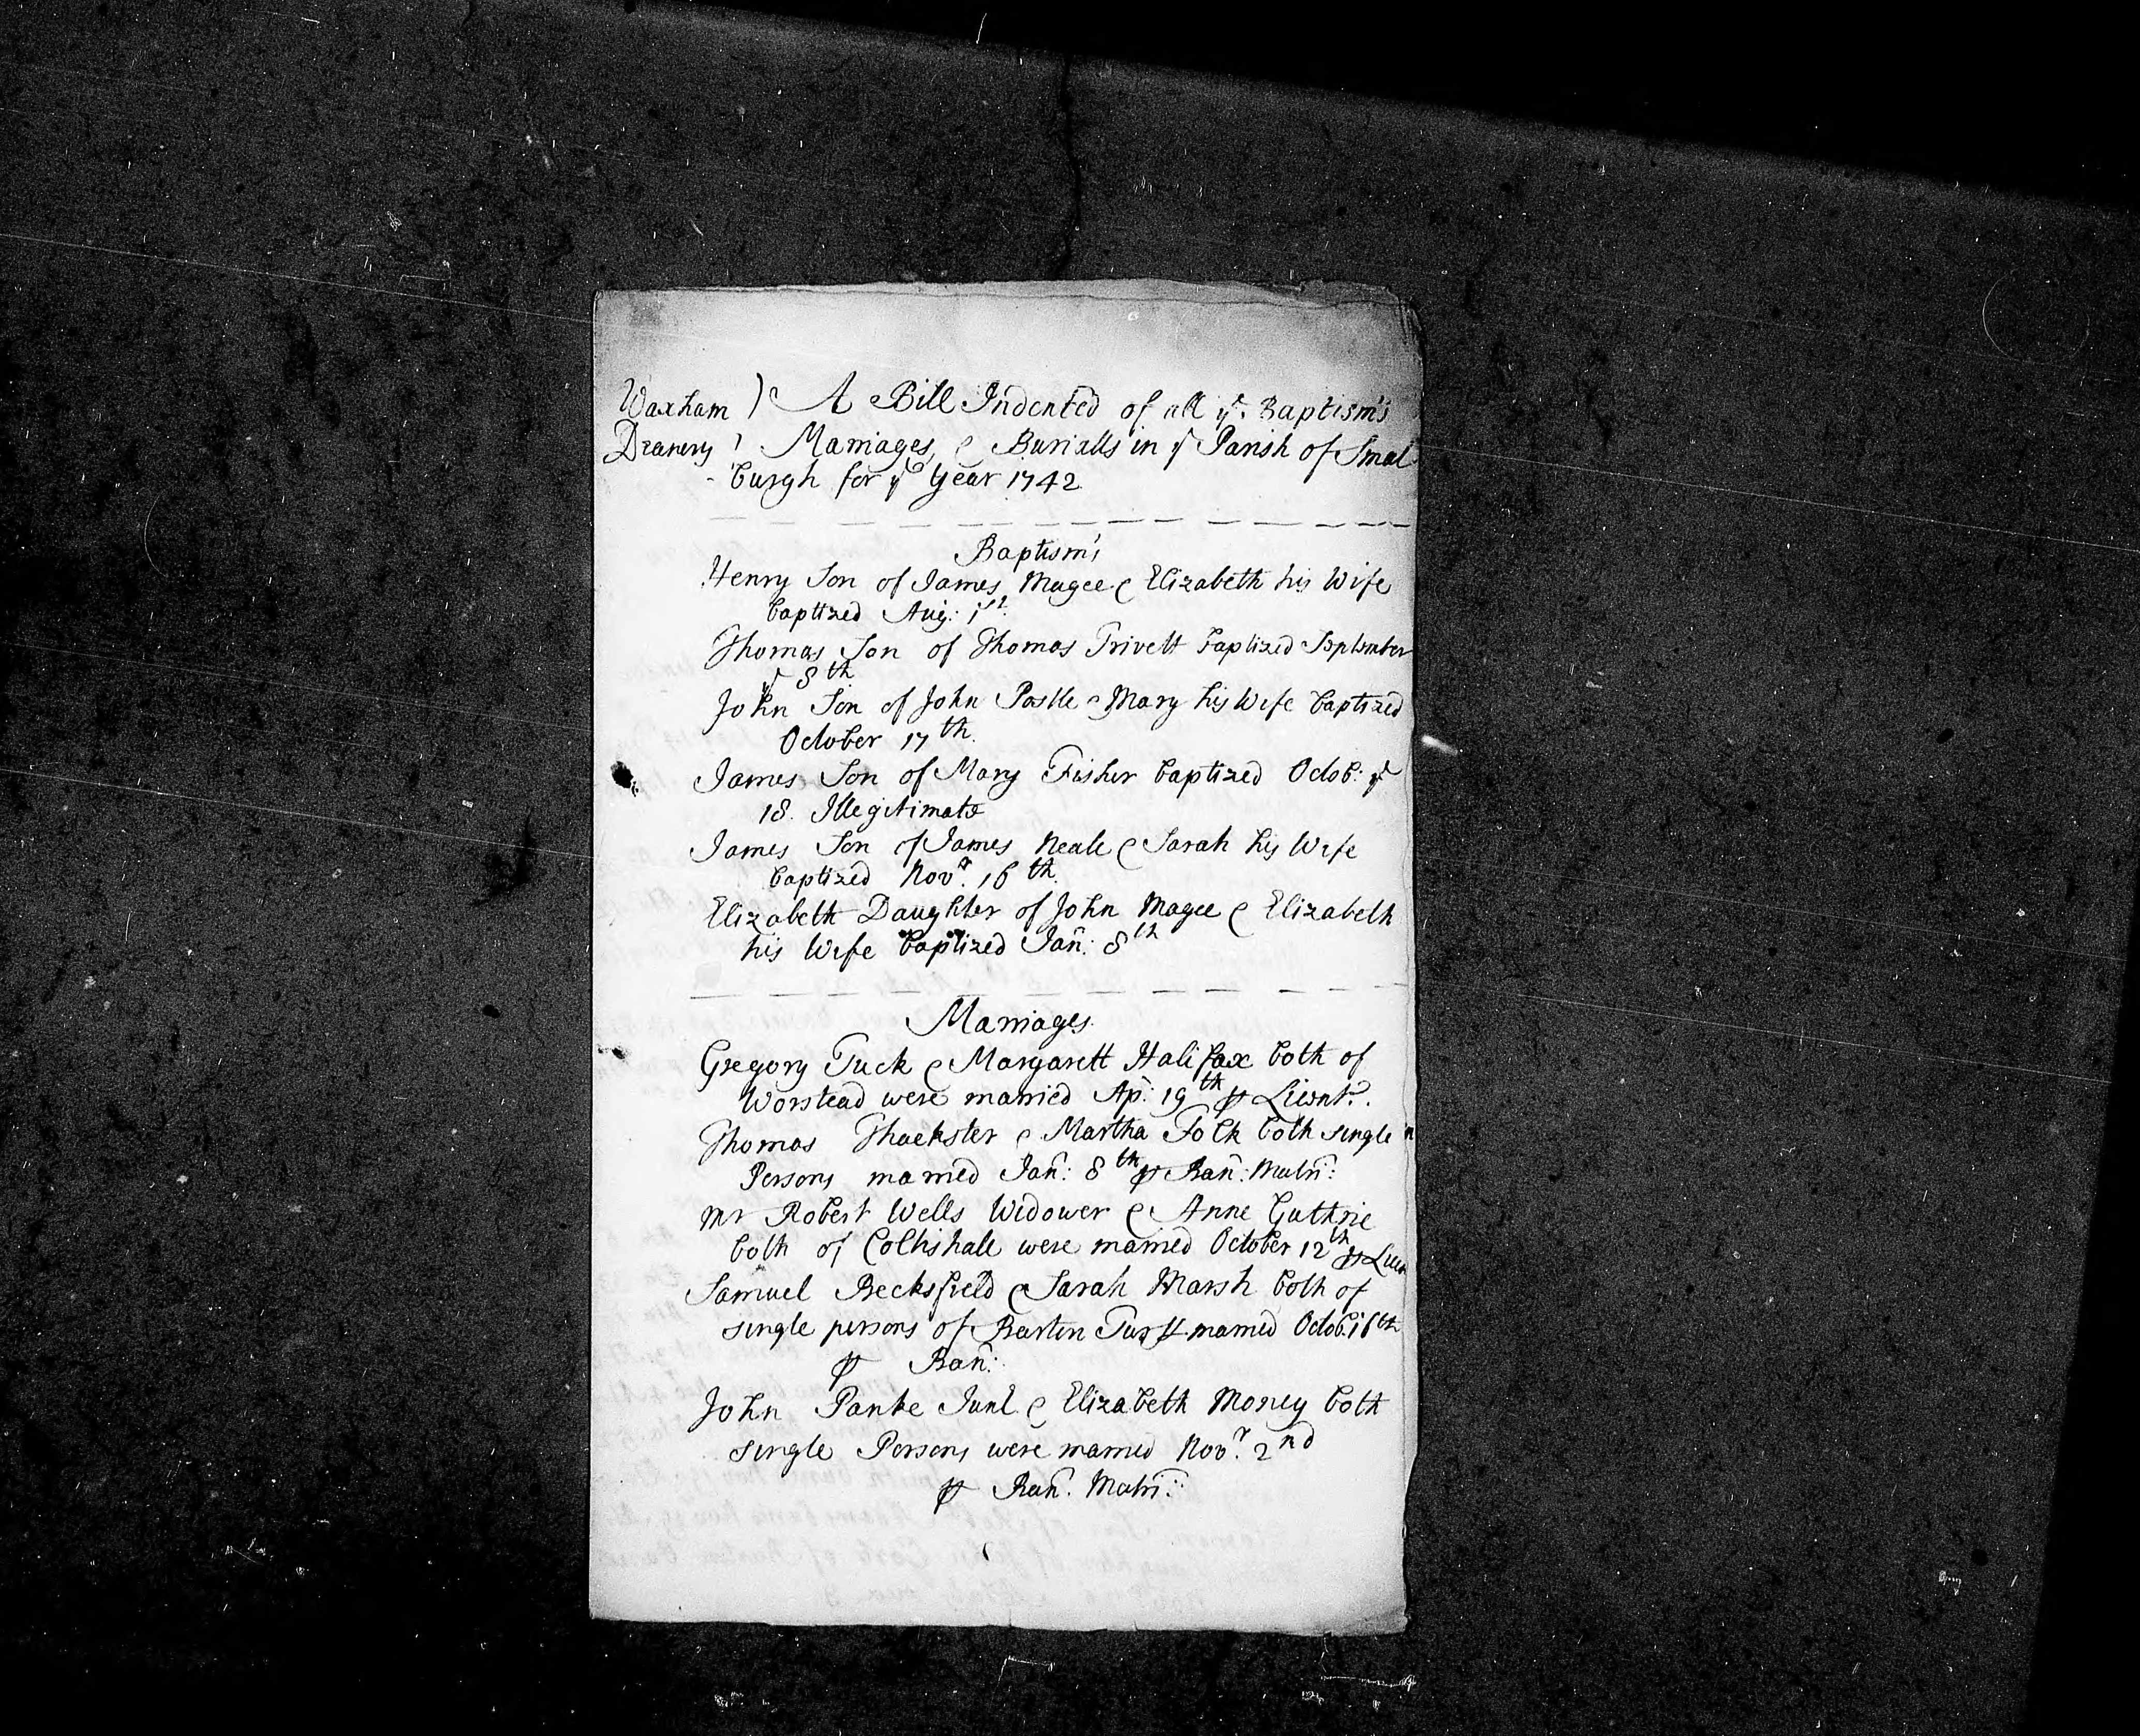 Waxham ) A Bill Indented of all ye. Baptism's
Deanery ) Marriages, & Burialls in ye Parish of Smal
- burgh for ye Year 1742
Baptism's
Henry Son of James Magee & Elizabeth his Wife
baptized Aug: 1st.
Thomas Son of Thomas Trivett baptized September
ye 8th
John Son of John Postle & Mary his Wife baptized
October 17th.
James Son of Mary Fisher baptized Octob: ye
18. Illegitimate
James Son of James Neale & Sarah his Wife
baptized Novr. 16th.
Elizabeth Daughter of John Magee & Elizabeth
his Wife baptized Jan: 8th
Marriages.
Gregory Tuck & Margarett Halifax both of
Worstead were married Ap: 19th p
Thomas Thackster & Martha Folk both single
Persons married Jan: 8th p Ban: Matri:
Mr Robert Wells Widower & Anne Guthrie
both of Coltishall were married October 12th p
Samuel Becksfield & Sarah Marsh both of
single persons of Barton married Octob: 16th
p Ban:
John Parke Junr. & Elizabeth Money both
single Persons were married Novr. 2nd
p Ban: Matri: